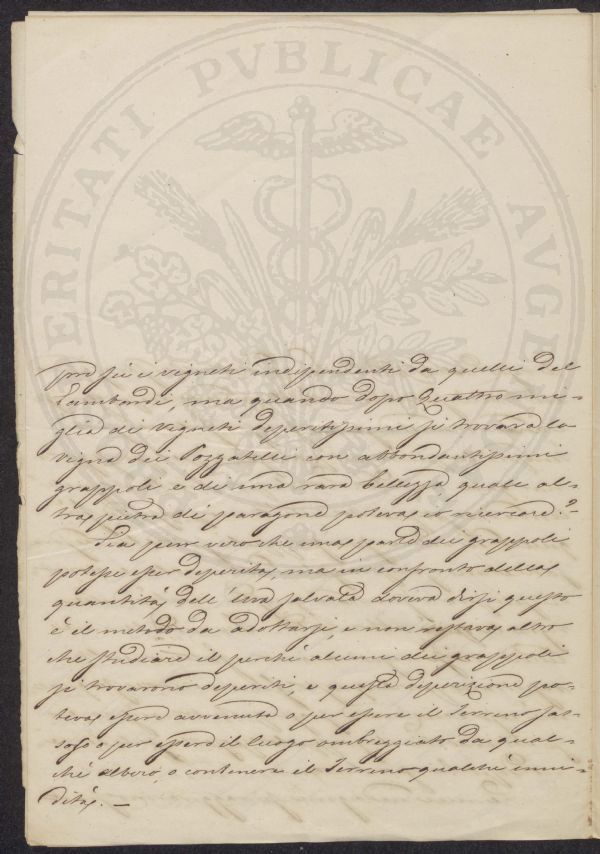 VERITATI PVBLICAE AVGENDAE
più i vigneti indipendenti da quelli del
Lambardi, ma quando dopo quattro mi-
glia di vigneti deperitissimi si trovava la
vigna dei Pozzatelli con abbondantissimi
grappoli e di una rara bellezza quale al-
tra pietra di paragone poteva io ricercare?
Sia pur vero che una parte dei grappoli
potesse esser deperita, ma in confronto della
quantità dell'Uva salvata doveva dirsi questo
è il metodo da adottarsi, e non restava altro
che studiare il perché alcuni dei grappoli
si trovarono deperiti, e questa deperizione po-
teva essere avvenuta o per essere il Terreno sas-
soso o per essere il luogo ombreggiato da qual-
ché albero, o contenere il Terreno qualche umi-
dità. —